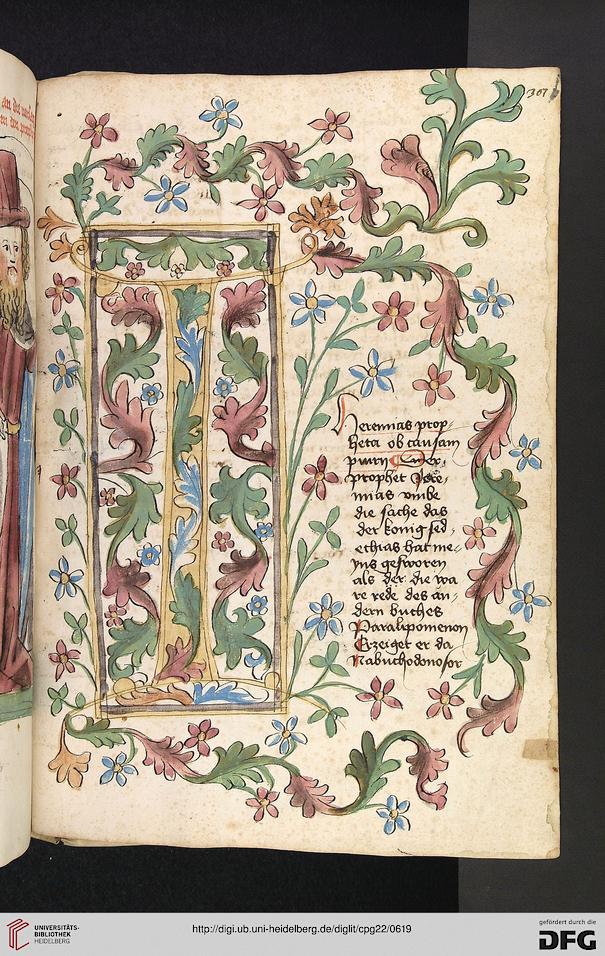 307
I
Heremias prop-
heta ob causam
prophet Jere-
mias vmbe
die sache das
der konig sed-
echias hat me-
yns gesworen
als der die wa
re rede des an-
dern buches
Paralipomenon
Erzeiget er da
Nabuchodonosor
UNIVERSITÄTS-
BIBLIOTHEK
HEIDELBERG
http://digi.ub.uni-heidelberg.de/diglit/cpg22/0619
gefördert durch die
DFG